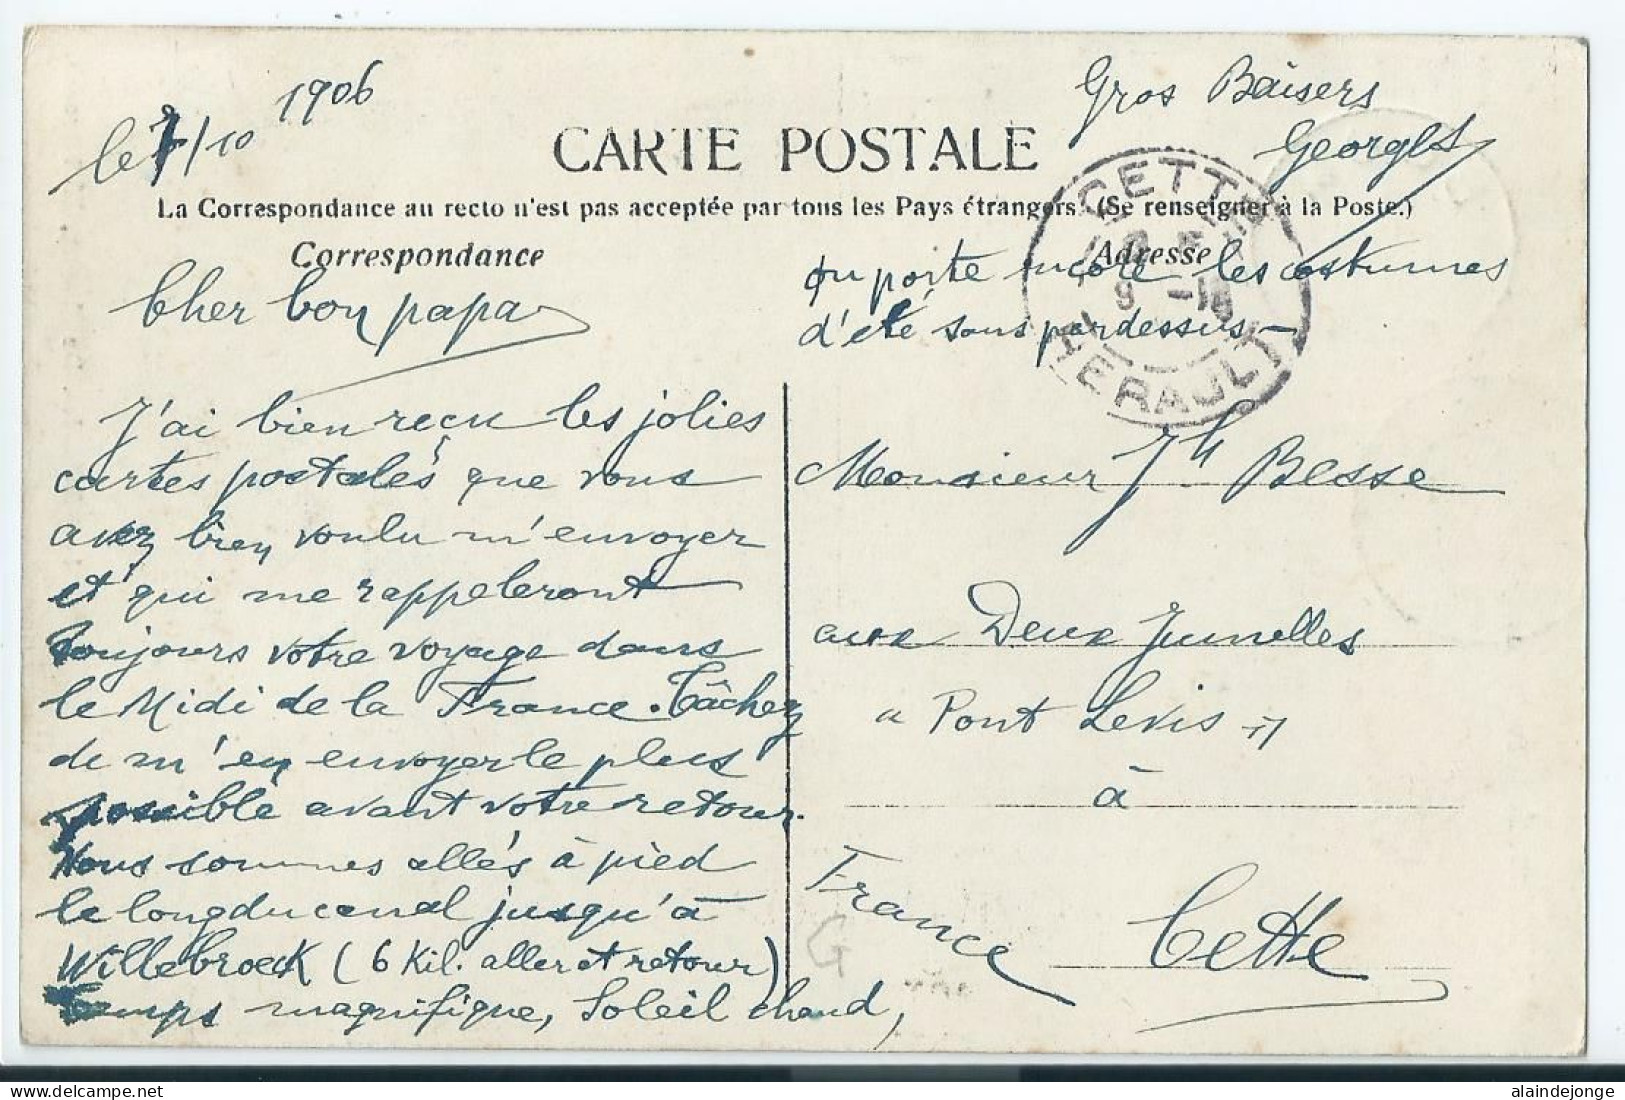 le 7/10 1906
Gros Baisers
Georges
CARTE POSTALE
La Correspondance au recto n'est pas acceptée par tous les Pays étrangers. (Se renseigner à la Poste.)
Correspondance
Adresse
Cher bon papa
J'ai bien reçu les jolies
cartes postales que vous
avez bien voulu m'envoyer
et qui me rappeleront
toujours votre voyage dans
le Midi de la France. Tâchez
de m'en envoyer le plus
possible avant votre retour.
Nous sommes allés à pied
le long du canal jusqu'à
Willebroeck (6 Kil. aller et retour)
Temps magnifique, Soleil chaud,
on porte encore les costumes
d'été sans pardessus -
CETTE
9 -10
HERAULT
Monsieur Jh Besse
aux Deux Jumelles
" Pont Levis "
à
Cette
France
G
alaindejonge